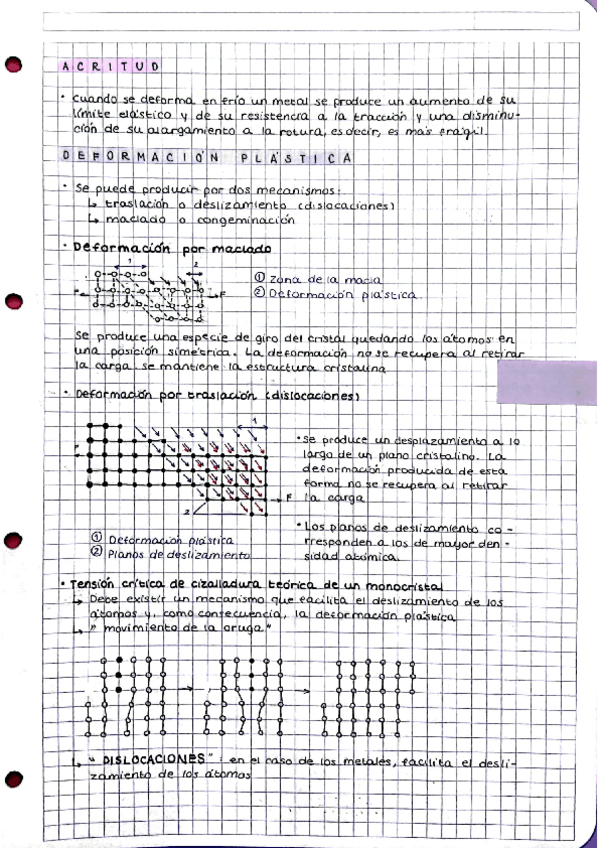 ACRITUD
· Cuando se deforma en frío un metal se produce un aumento de su
límite elástico y de su resistencia a la tracción y una disminu-
ción de su alargamiento a la rotura, es decir, es más frágil.
DEFORMACIÓN PLÁSTICA
· Se puede producir por dos mecanismos:
↳ traslación o deslizamiento (dislocaciones)
↳ maclado o congeminación
· Deformación por maclado
1 2
① Zona de la macla
F
② Deformación plástica
Se produce una especie de giro del cristal quedando los átomos en
una posición simétrica. La deformación no se recupera al retirar
la carga. Se mantiene la estructura cristalina
· Deformación por traslación (dislocaciones)
1
· Se produce un desplazamiento a lo
largo de un plano cristalino. La
deformación producida de esta
forma no se recupera al retirar
la carga
F
2
· Los planos de deslizamiento co-
rresponden a los de mayor den-
sidad atómica.
① Deformación plástica
② Planos de deslizamiento
· Tensión crítica de cizalladura teórica de un monocristal
↳ Debe existir un mecanismo que facilita el deslizamiento de los
átomos y, como consecuencia, la deformación plástica
↳ "movimiento de la oruga"
↳ "DISLOCACIONES": en el caso de los metales, facilita el desli-
zamiento de los átomos